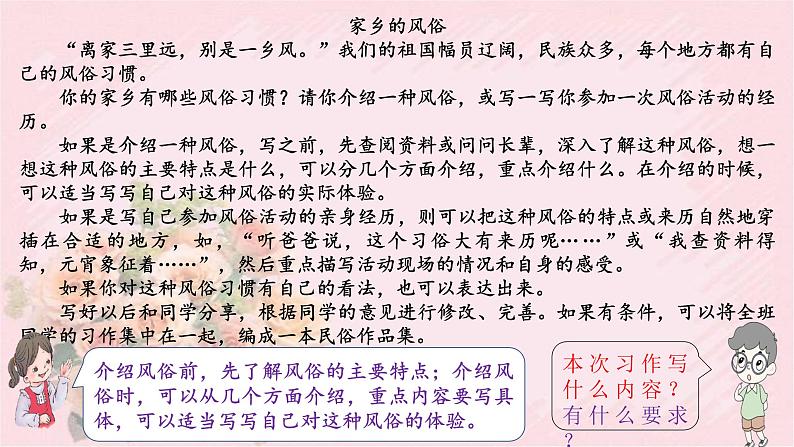 家乡的风俗
“离家三里远，别是一乡风。”我们的祖国幅员辽阔，民族众多，每个地方都有自
己的风俗习惯。
你的家乡有哪些风俗习惯？请你介绍一种风俗，或写一写你参加一次风俗活动的经
历。
如果是介绍一种风俗，写之前，先查阅资料或问问长辈，深入了解这种风俗，想一
想这种风俗的主要特点是什么，可以分几个方面介绍，重点介绍什么。在介绍的时候，
可以适当写写自己对这种风俗的实际体验。
如果是写自己参加风俗活动的亲身经历，则可以把这种风俗的特点或来历自然地穿
插在合适的地方，如，“听爸爸说，这个习俗大有来历呢……”或“我查资料得
知，元宵象征着……”，然后重点描写活动现场的情况和自身的感受。
如果你对这种风俗习惯有自己的看法，也可以表达出来。
写好以后和同学分享，根据同学的意见进行修改、完善。如果有条件，可以将全班
同学的习作集中在一起，编成一本民俗作品集。
介绍风俗前，先了解风俗的主要特点；介绍风
俗时，可以从几个方面介绍，重点内容要写具
体，可以适当写写自己对这种风俗的体验。
本次习作写
什么内容？
有什么要求
？